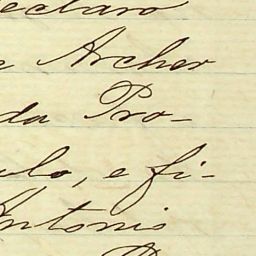 eclaro
Archer
da Pro-
ulo, e fi-
Antonio